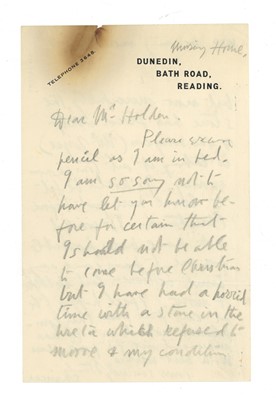 Nursing Home,
TELEPHONE 2845.
DUNEDIN,
BATH ROAD,
READING.
Dear Mr Holden.
Please excuse
pencil as I am in bed.
I am so sorry not to
have let you know be-
fore for certain that
I should not be able
to come before Christmas
but I have had a horrid
time with a stone in the
ureta which refused to
move & my condition